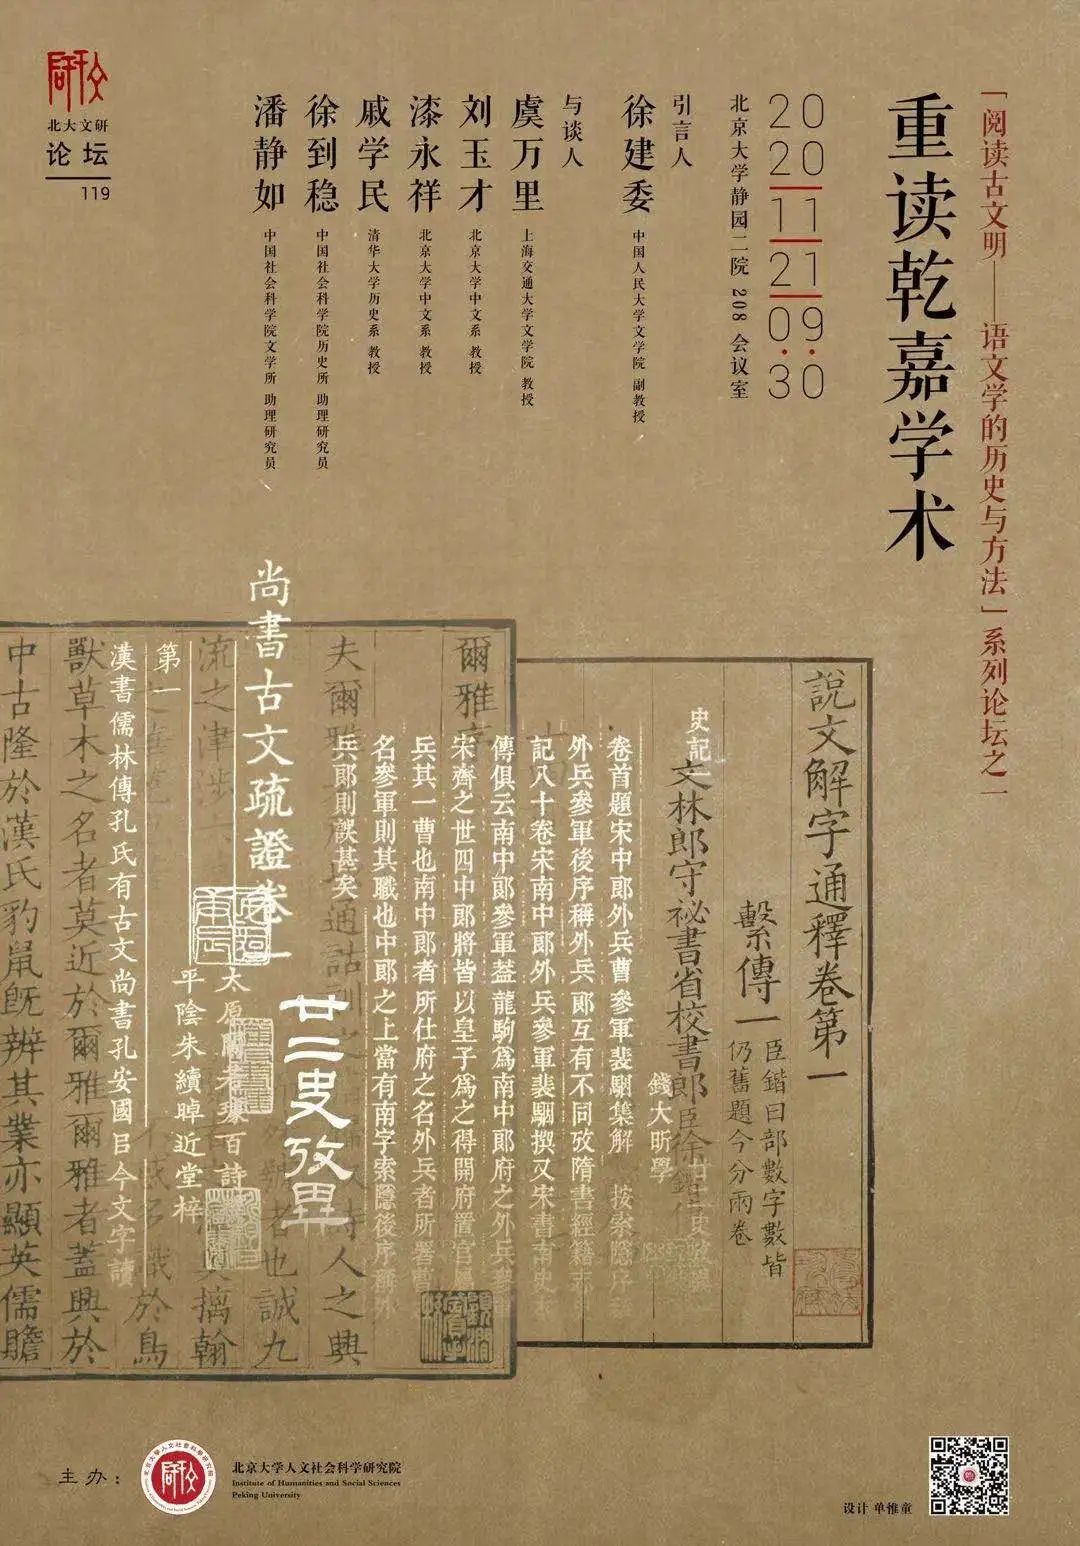 「阅读古文明——语文学的历史与方法」系列论坛之一
重读乾嘉学术
2020
11
21
09:30
北京大学静园二院 208 会议室
引言人
徐建委 中国人民大学文学院 副教授
与谈人
虞万里 上海交通大学文学院 教授
刘玉才 北京大学中文系 教授
漆永祥 北京大学中文系 教授
戚学民 清华大学历史系 教授
徐到稳 中国社会科学院历史所 助理研究员
潘静如 中国社会科学院文学所 助理研究员
北大文研
论坛
119
說文解字通釋卷第一
繫傳一
臣鍇曰部數字數皆
仍舊題今分兩卷
文林郎守祕書省校書郎臣徐鍇
史記
錢大昕學
卷首題宋中郎外兵曹參軍裴駰集解 按索隱
外兵參軍後序稱外兵郎互有不同攷隋書經籍志
記八十卷宋南中郎外兵參軍裴駰撰又宋書南史
傳俱云南中郎參軍葢龍駒爲南中郎府之外兵
宋齊之世四中郎將皆以皇子爲之得開府置官屬
兵其一曹也南中郎者所仕府之名外兵者所署
名參軍則其職也中郎之上當有南字索隱後序
兵郎則誤甚矣
廿二史攷異
爾雅序
尚書古文疏證卷一
太原閻若璩百詩
平陰朱續晫近堂梓
第一
漢書儒林傳孔氏有古文尚書孔安國㠯今文字讀
獸草木之名者莫近於爾雅爾雅者蓋興於
中古隆於漢氏豹鼠旣辨其業亦顯英儒贍
主办：
北京大学人文社会科学研究院
Institute of Humanities and Social Sciences
Peking University
设计 单惟童